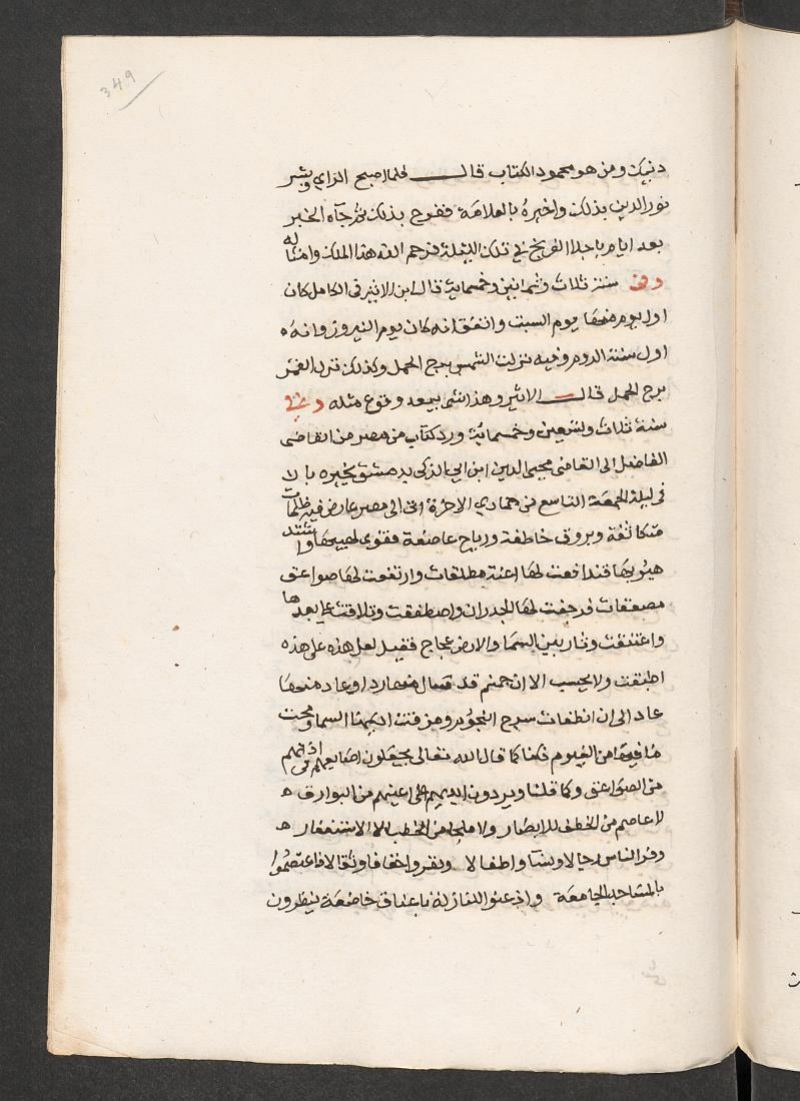 349
دنيك ومن هو محمود الكتاب قال فلما اصبح الراي وبشر
نور الدين بذلك واخبره بالعلامة ففرح بذلك ثم جآه الخبر
بعد ايام باجلا الفرنج في تلك الليلة فرحم الله هذا الملك وامثاله
وفي سنة ثلاث وثمانين وخمسماية قال ابن الاثير في الكامل كان
اول يوم منها يوم السبت واتفق انه كان يوم النيروز وانه ه
اول سنة الروم وفيه نزلت الشمس برج الحمل وكذلك نزل القمر
برج الحمل قال الاثير وهذا شي يبعد وقوع مثله وفي
سنة ثلاث وتسعين وخمسماية ورد كتاب من مصر من القاضى
الفاضل الى القاضى محيى الدين ابن ابي الزكى بدمشق يخبره بالا
فى ليلة الجمعة التاسع من جمادي الاخرة اتى الى مصر عارض فيه ظلمات
متكاثفة وبروق خاطفة ورياح عاصفة فقوى لهيبها واشتد
هبوبها قد دافعت لها اعنة مطلقات وارتفعت لها صواعق
مصعقات فرجفت لها الجدران واصطفقت وتلاقت على بعدها
واعتنقت وثار بين السما والارض عجاج فقيل لعل هذه على هذه
اطبقت ولا يحسب الا ان جهنم قد سال منها واد او عاد منها
عاد الى ان انطفات سرج النجوم ومزقت اديم السما ومحت
ما فيها من الغيوم فكنا كما قال الله تعالى يجعلون اصابعهم في اذانهم
من الصواعق وكما قلنا ويردون ايديهم على اعينهم من البوارق ه
لا عاصم من الخطف للابصار ولا ملجا من الخطب الا الاستغفار ه
وفر الناس رجالا ونسآ واطفالا ونفروا خفافا وثقالا فاعتصموا
بالمساجد الجامعة واذعنوا للنازلة باعناق خاضعة ينظرون